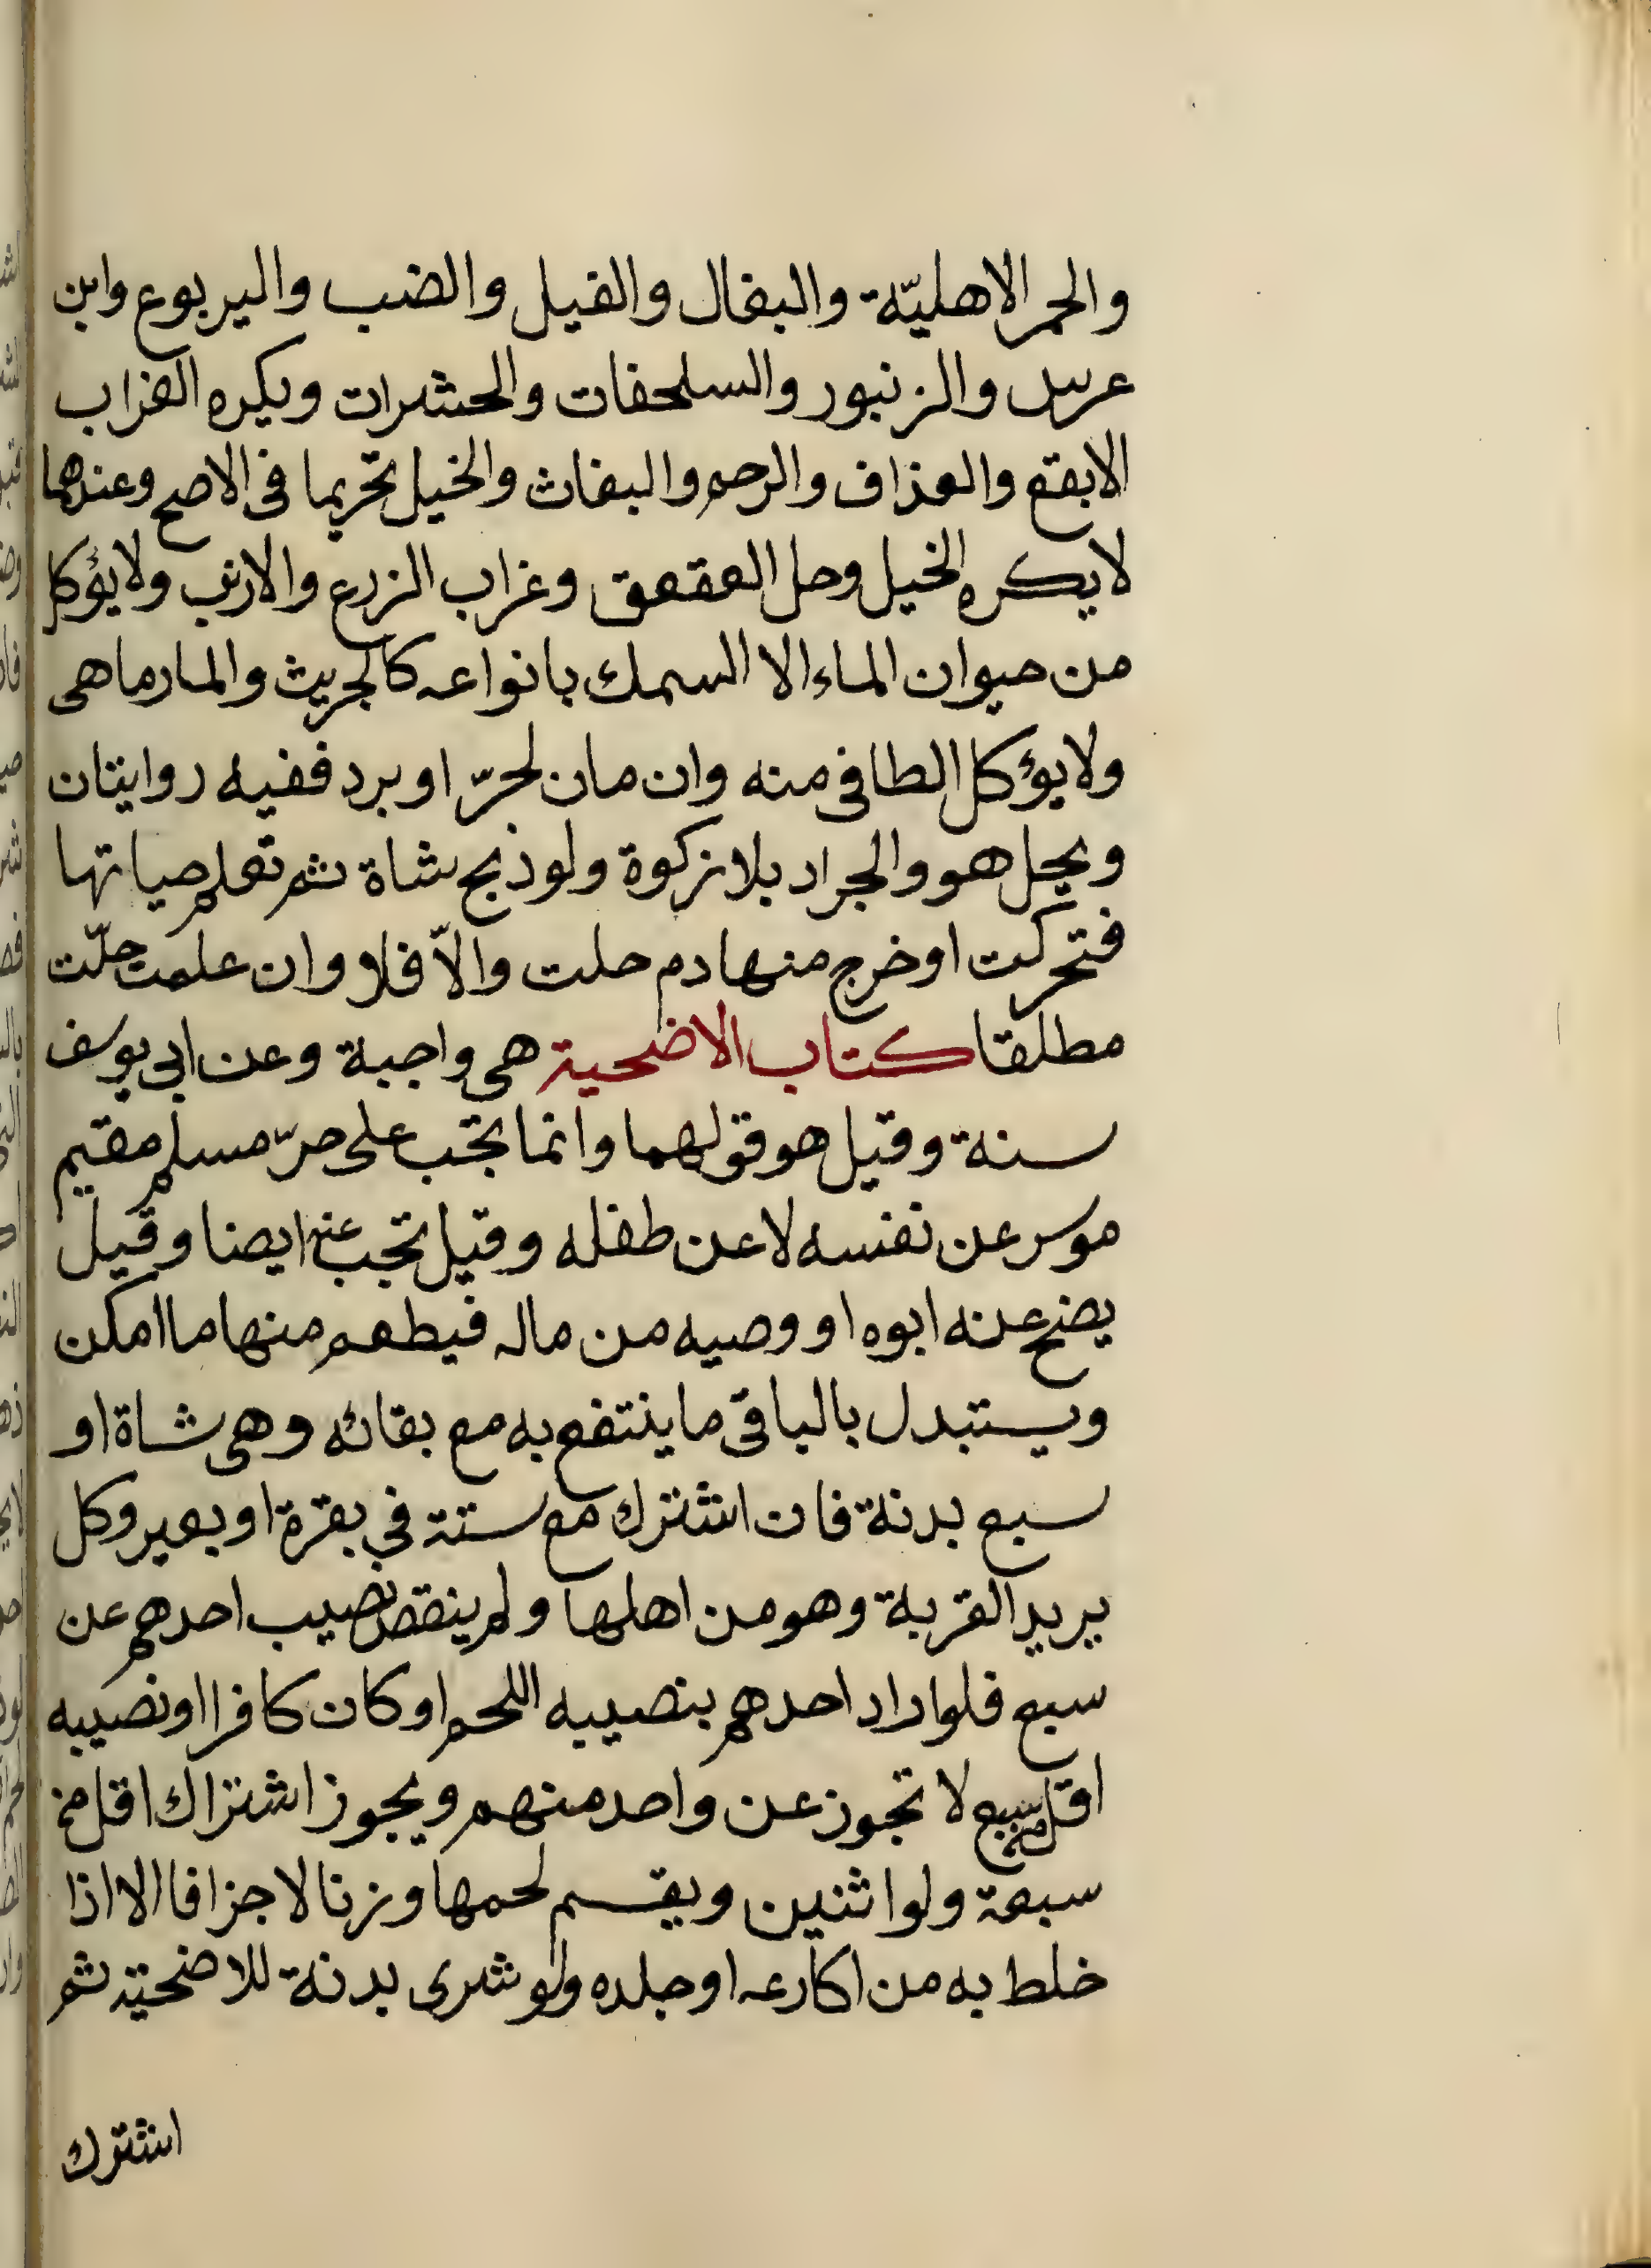 والحمر الاهليّة والبغال والفيل والضب واليربوع وابن
عرس والزنبور والسلحفات والحشرات ويكره الغراب
الابقع والغداف والرحم والبغاث والخيل تحريما فى الاصح وعندهما
لا يكره الخيل وحل العقعق وغراب الزرع والارنب ولا يؤكل
من حيوان الماء الا السمك بانواعه كالجريث والمارماهى
ولا يؤكل الطافى منه وان مات لحرّ او برد ففيه روايتان
ويحل هو والجراد بلا زكوة ولو ذبح شاة ثم تعلم حياتها
فتحركت او خرج منها دم حلت والاّ فلا وان علمت حلّت
مطلقا كتاب الاضحية هى واجبة وعن ابى يوسف
سنة وقيل هو قولهما وانما تجب على حرّ مسلم مقيم
موسر عن نفسه لا عن طفله وقيل تجب عنه ايضا وقيل
يضح عنه ابوه او وصيه من ماله فيطعم منها ما امكن
ويستبدل بالباقى ما ينتفع به مع بقائه وهى شاة او
سبع بدنة فان اشترك مع ستة فى بقرة او بعير وكل
يريد القربة وهو من اهلها ولم ينقص نصيب احدهم عن
سبع فلو اراد احدهم بنصيبه اللحم او كان كافرا او نصيبه
اقل من سبع لا تجوز عن واحد منهم ويجوز اشتراك اقل من
سبعة ولو اثنين ويقسم لحمها وزنا لا جزافا الا اذا
خلط به من اكارعه او جلده ولو شرى بدنة للاضحية ثم
اشترك